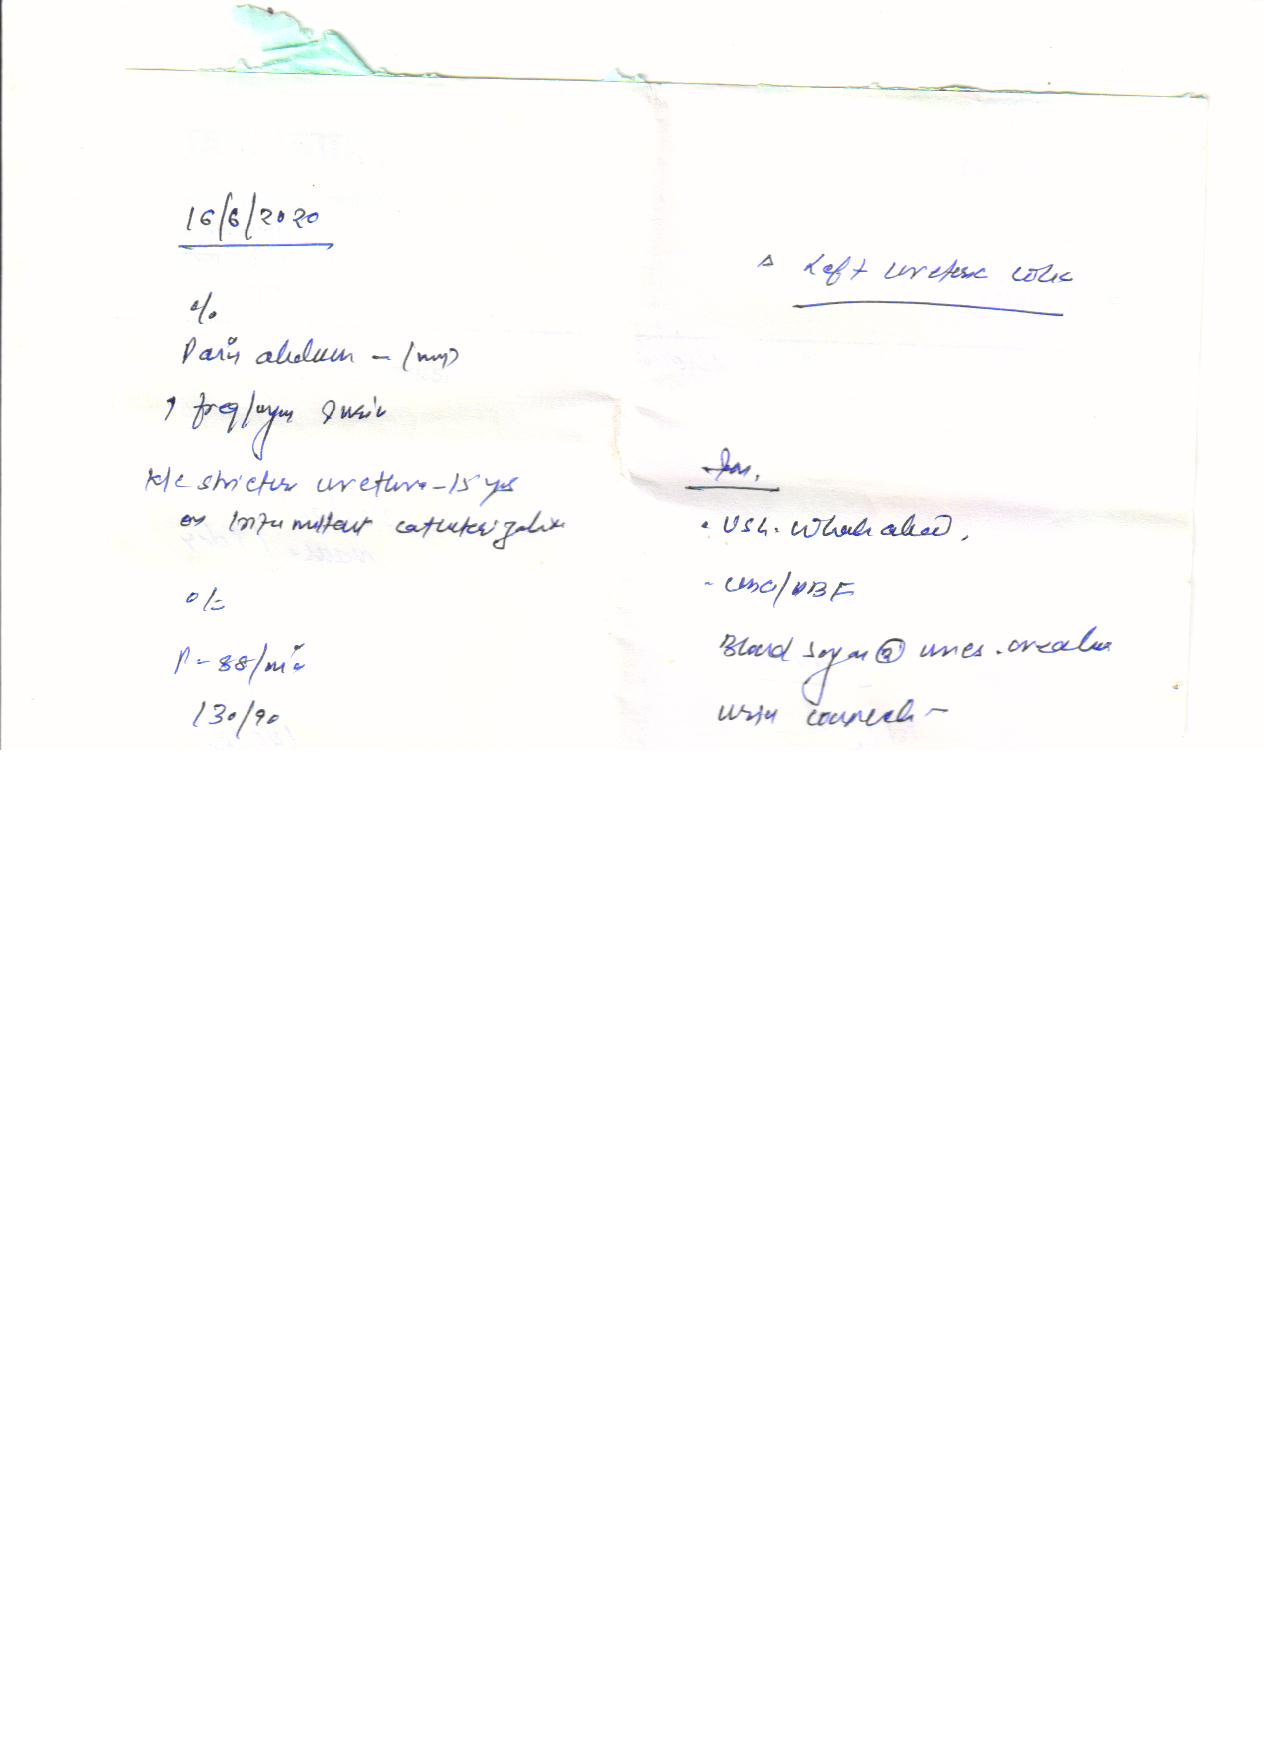 16/6/2020
c/o
Pain abdomen -
↑ freq/urgen urin
K/c stricture urethra - 15 yrs
on Intermittent catheterization
o/e
P - 88/min
130/90
Δ Left ureteric colic
Inv.
• USG. Whole abd.
- CBC/PBF
Blood sugar (R) urea. creatin
Urin